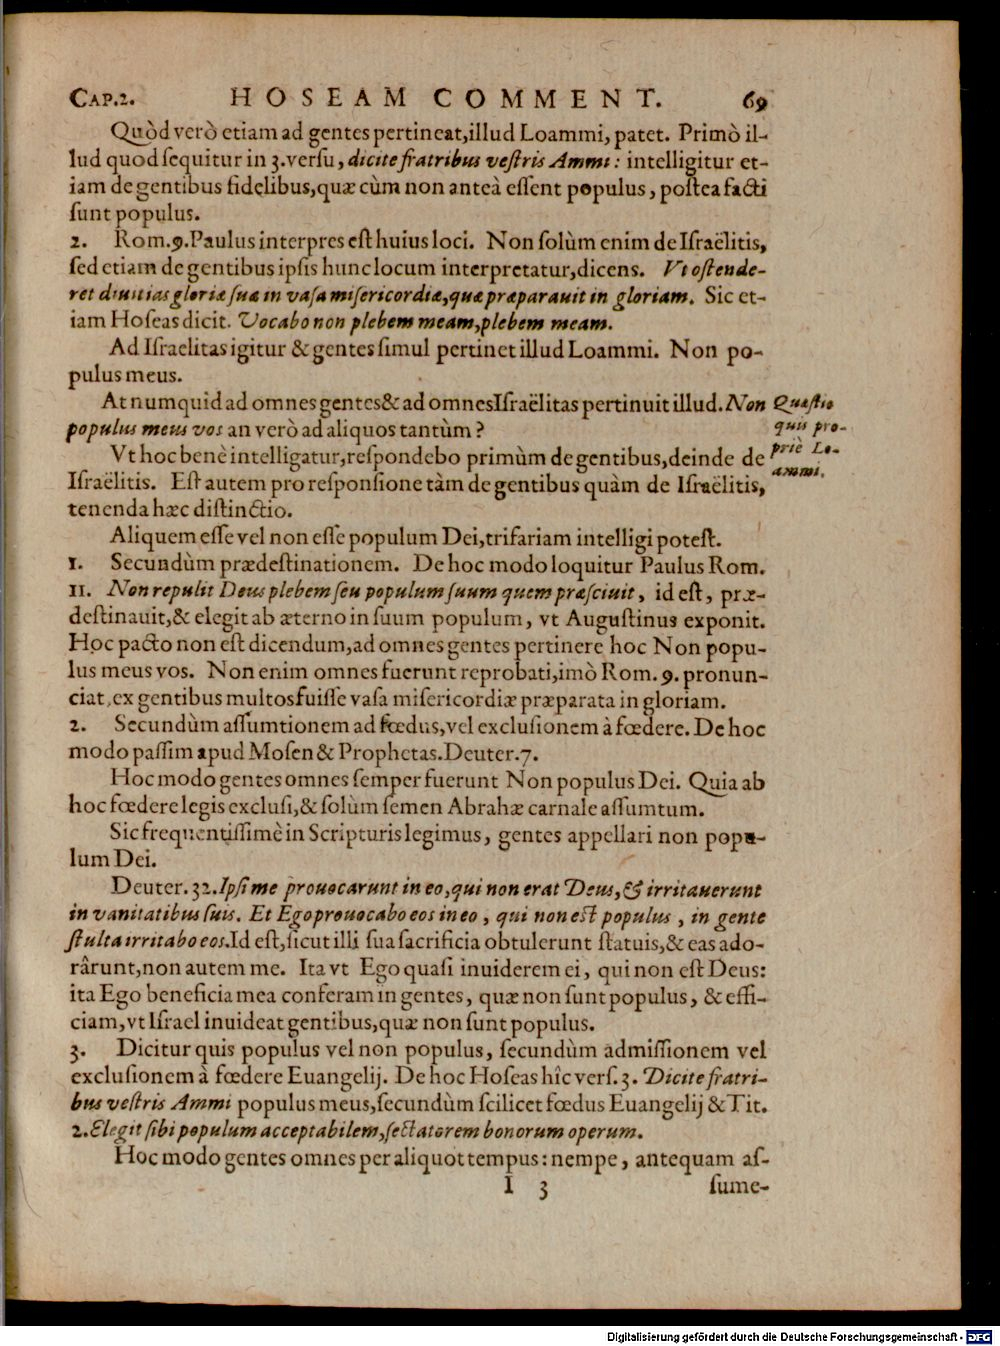 CAP.2. HOSEAM COMMENT. 69
Quòd verò etiam ad gentes pertineat, illud Loammi, patet. Primò il-
lud quod sequitur in 3. versu, dicite fratribus vestris Ammi: intelligitur et-
iam de gentibus fidelibus, quæ cùm non anteà essent populus, postea facti
sunt populus.
2. Rom. 9. Paulus interpres est huius loci. Non solùm enim de Israëlitis,
sed etiam de gentibus ipsis hunc locum interpretatur, dicens. Vt ostende-
ret diuitias gloriæ suæ in vasa misericordiæ, quæ præparauit in gloriam. Sic et-
iam Hoseas dicit. Vocabo non plebem meam, plebem meam.
Ad Israelitas igitur & gentes simul pertinet illud Loammi. Non po-
pulus meus.
At numquid ad omnes gentes & ad omnes Israëlitas pertinuit illud. Non
populus meus vos an verò ad aliquos tantùm?
Quæstio
quis pro-
priè Lo-
ammi.
Vt hoc benè intelligatur, respondebo primùm de gentibus, deinde de
Israëlitis. Est autem pro responsione tàm de gentibus quàm de Israëlitis,
tenenda hæc distinctio.
Aliquem esse vel non esse populum Dei, trifariam intelligi potest.
1. Secundùm prædestinationem. De hoc modo loquitur Paulus Rom.
11. Non repulit Deus plebem seu populum suum quem præsciuit, id est, præ-
destinauit, & elegit ab æterno in suum populum, vt Augustinus exponit.
Hoc pacto non est dicendum, ad omnes gentes pertinere hoc Non popu-
lus meus vos. Non enim omnes fuerunt reprobati, imò Rom. 9. pronun-
ciat, ex gentibus multos fuisse vasa misericordiæ præparata in gloriam.
2. Secundùm assumtionem ad fœdus, vel exclusionem à fœdere. De hoc
modo passim apud Mosen & Prophetas. Deuter. 7.
Hoc modo gentes omnes semper fuerunt Non populus Dei. Quia ab
hoc fœdere legis exclusi, & solùm semen Abrahæ carnale assumtum.
Sic frequentissimè in Scripturis legimus, gentes appellari non popu-
lum Dei.
Deuter. 32. Ipsi me prouocarunt in eo, qui non erat Deus, & irritauerunt
in vanitatibus suis. Et Ego prouocabo eos in eo, qui non est populus, in gente
stulta irritabo eos. Id est, sicut illi sua sacrificia obtulerunt statuis, & eas ado-
rârunt, non autem me. Ita vt Ego quasi inuiderem ei, qui non est Deus:
ita Ego beneficia mea conferam in gentes, quæ non sunt populus, & effi-
ciam, vt Israel inuideat gentibus, quæ non sunt populus.
3. Dicitur quis populus vel non populus, secundùm admissionem vel
exclusionem à fœdere Euangelij. De hoc Hoseas hîc vers. 3. Dicite fratri-
bus vestris Ammi populus meus, secundùm scilicet fœdus Euangelij & Tit.
2. Elegit sibi populum acceptabilem, sectatorem bonorum operum.
Hoc modo gentes omnes per aliquot tempus: nempe, antequam as-
I 3 sume-
Digitalisierung gefördert durch die Deutsche Forschungsgemeinschaft - DFG